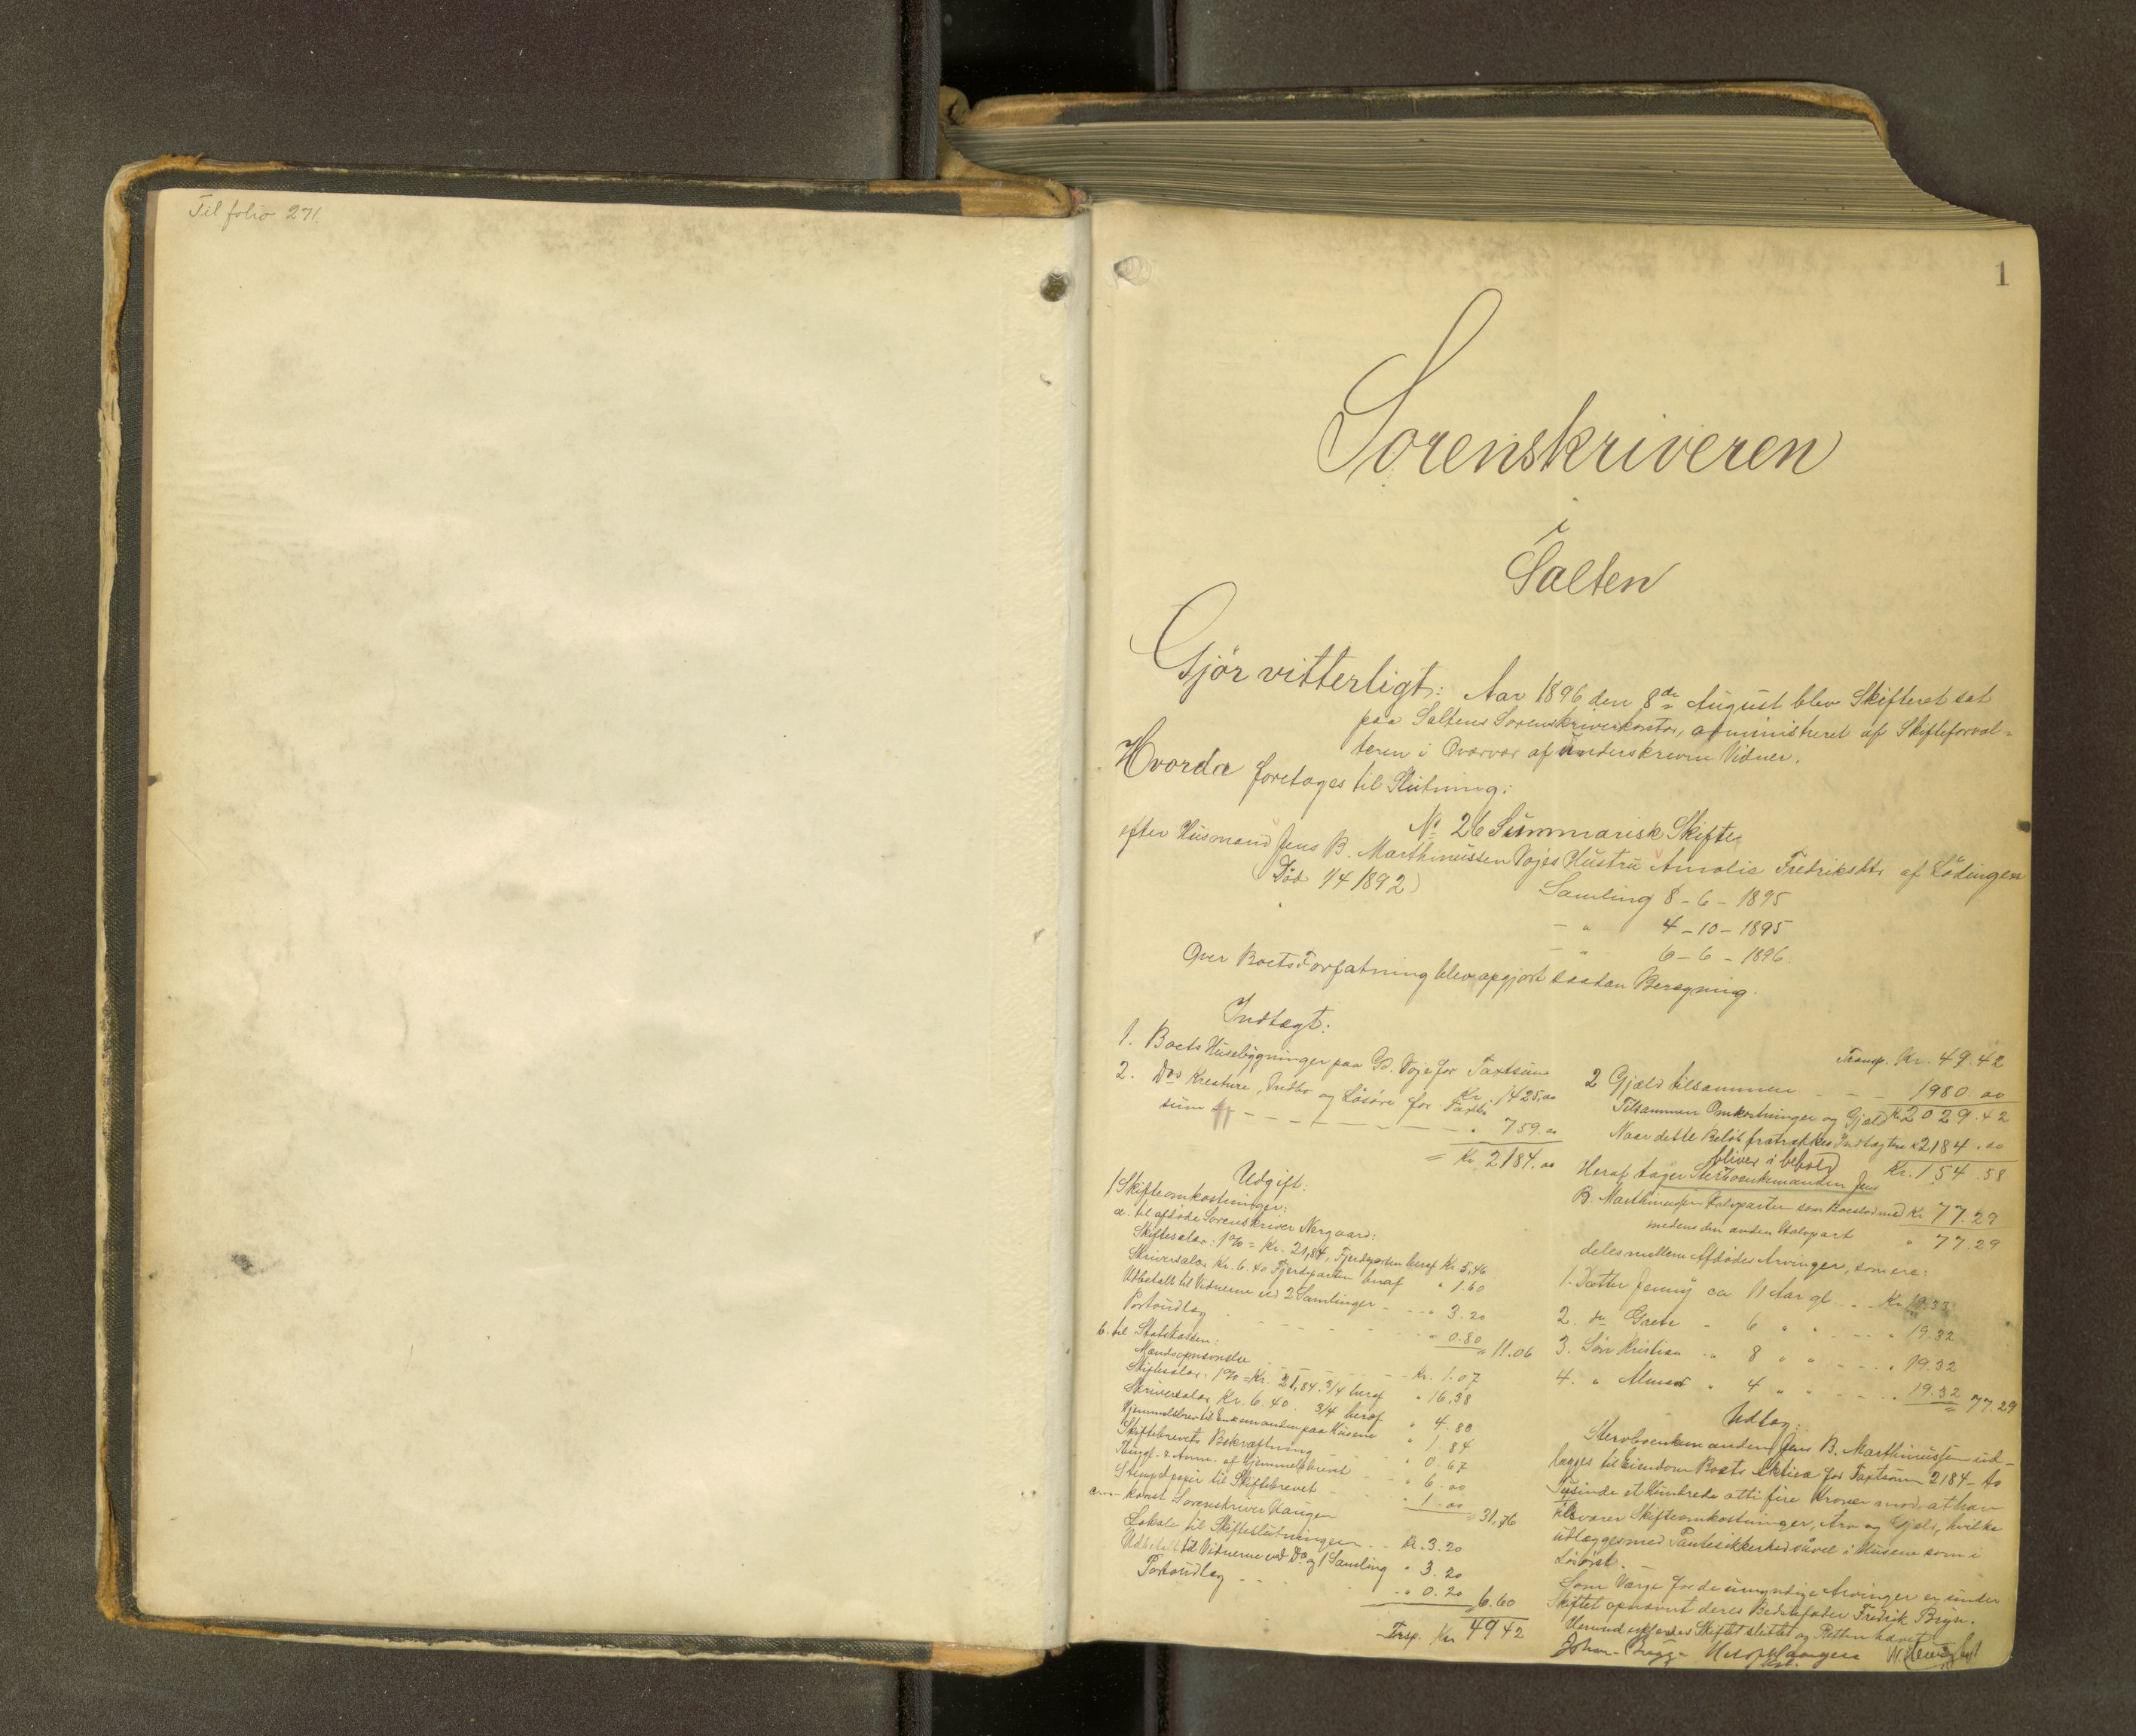 Til folio 271.
1
Sorenskriveren
i
Salten
Gjör vitterligt: Aar 1896 den 8de August blev Skifteret sat
paa Saltens Sorenskriverkontor, administreret af Skifteforval-
teren i Overvær af underskrevne Vidner.
Hvorda foretages til Slutning:
No 26 Summarisk Skifte
efter Husmand Jens B. Marthinussen Vojes Hustru Amalie Fredriksdtr af Lödingen
(Död 1/4 1892)
Samling 8-6-1895
- " 4-10-1895
- " 6-6-1896.
Over Boets Forfatning blev opgjort saadan Beregning.
Indtægt:
1. Boets Husebygninger paa Gd. Voje for Taxtsum
Kr. 1425,00
2. Dos Kreature, Indbo og Lösöre for Taxt-
sum " 759.00
= Kr 2184.00
Udgift:
1 Skifteomkostninger:
a. til afdöde Sorenskriver Norgaard:
Skiftesalær: 1% = Kr. 21,84, Fjerdeparten heraf Kr 5,46
Skriversalær Kr. 6.40 Fjerdeparten heraf " 1.60
Udbetalt til Vidnerne ved 2 Samlinger - - " 3.20
Portoudlæg - - - " 0.80 = 11.06
b. til Statskassen:
- - - Kr. 1.07
Skiftesalær: 1% = Kr. 21,84. 3/4 heraf " 16,38
Skriversalær Kr. 6.40. 3/4 heraf " 4.80
Hjemmelsbrev til Enkemanden paa Husene " 1.84
Skiftebrevets Bekræftning - " 0.67
Thingl. & Anm. af Hjemmelsbrevet - - " 6.00
Stempelpapir til Skiftebrevet - - " 1.00 = 31,76
konst Sorenskriver Haugen
Lokale til Skifteslutningen - - Kr. 3.20
Udbetalt til Vidnerne ved Do og 1 Samling " 3.20
Portoudlæg - - " 0.20 6.60
Trsp. Kr 49 42
Transp. Kr. 49.42
2 Gjæld tilsammen - - - 1980.00
Tilsammen Omkostninger og Gjæld Kr 2029.42
Naar dette Belöb fratrækkes Indtægten 2184.00
bliver i behold Kr. 154.58
Heraf tager Sterboenkemanden Jens
B. Marthinussen Halvparten som Boeslod med Kr 77.29
medens den anden Halvpart " 77.29
deles mellem Afdödes Arvinger, som ere:
1. Datter Jenny ca 11 Aar gl. - Kr 19.33
2. do Grete - 6 " " - - " 19.32
3. Sön Kristian " 8 " " - - " 19.32
4. " " 4 " " - - " 19.32 = 77.29
Udlæg:
Stervboenkemanden Jens B. Marthinussen ud-
lægges til Eiendom Boets Aktiva for Taxtsum 2184 - to
Tusinde et Hundrede otti fire Kroner mod, at han
tilsvarer Skifteomkostninger, Arv og Gjæld, hvilke
udlægges med Pantesikkerhed saavel i Husene som i
Lösöret.
Som Værge for de umyndige Arvinger er under
Skiftet opnævnt deres Bedstefader Fredrik
Hermed er Skiftet sluttet og Retten hævet
Haugen